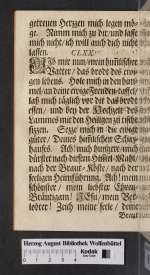 getreuen Hertzen mich legen mö-
ge. Nimm mich zu dir, und lasse
mich nicht, ich will auch dich nicht
lassen.
CLXX.
mir nun, mein himmlischer
Vatter, das brodt des ewi-
gen lebens. Hole mich in den
mel, an deine ewige Freuden-taffel,
laß mich täglich von dir das brodt
essen, und bey der Hochzeit des
Lammes mit den Heiligen zu tisch
sitzen. Setze mich in die ewige
güter, Deines himmlischen
hauses. Ach! mich hungert und
dürstet nach diesem
nach der Braut-
seeligen Heimführung. Ach! mein
schönster, mein liebster
Bräutigam! JEsu, mein Ver-
lobter! Zieh meine seele, deine
Braut
Herzog August Bibliothek Wolfenbüttel